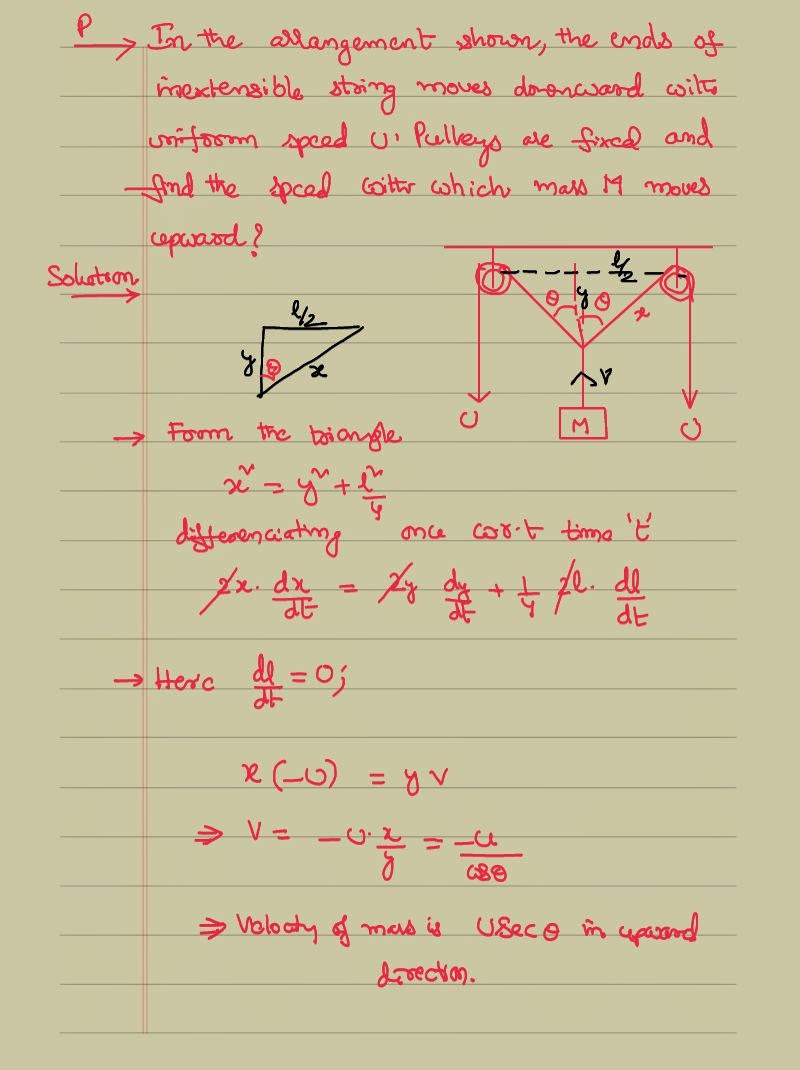 P → In the arrangement shown, the ends of
inextensible string moves downward with
uniform speed U. Pulleys are fixed and
find the speed with which mass M moves
upward?
Solution →
l/2
θ y θ x
l/2
y θ x
V
U M U
→ From the triangle
x² = y² + l²/4
differenciating once w.r.t time 't'
2x. dx/dt = 2y dy/dt + 1/4 2l. dl/dt
→ Here dl/dt = 0;
x(-U) = y V
⇒ V = -U. x/y = -U/cosθ
⇒ Velocity of mass is U sec θ in upward
direction.